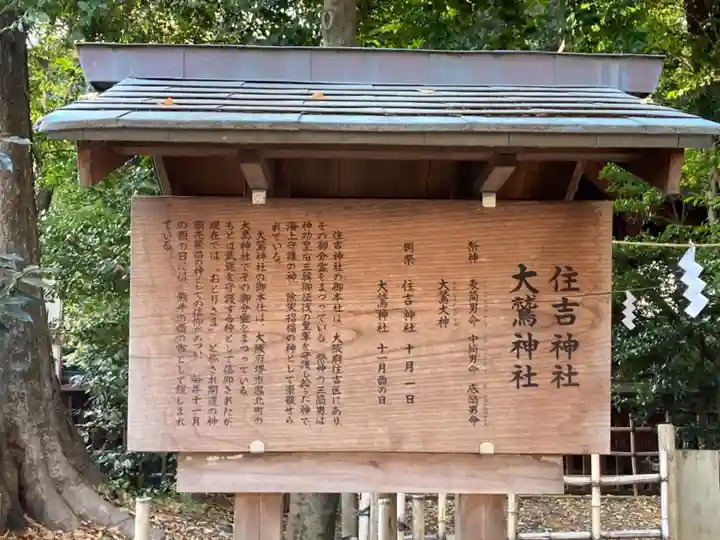 住吉神社
大鷲神社
祭神 表筒男命 中筒男命 底筒男命
大鳥大神
例祭 住吉神社 十月一日
大鷲神社 十一月酉の日
住吉神社の御本社は、大阪府住吉区にあり
その御分霊をまつっている 祭神の三筒男は
神功皇后三韓御征伐の皇軍を守護し給うた神で、
海上守護の神 除災招福の神として崇敬せら
れている。
大鷲神社の御本社は、大阪府堺市鳳北町の
大鳥神社でその御分霊をまつっている
もとは武運を守護する神として信仰されたが
現在では“おとりさま”と称され開運の神
商売繁昌の神としての信仰があつい 毎年十一月
の酉の日には、熊手の酉の市として賑しまれ
ている。